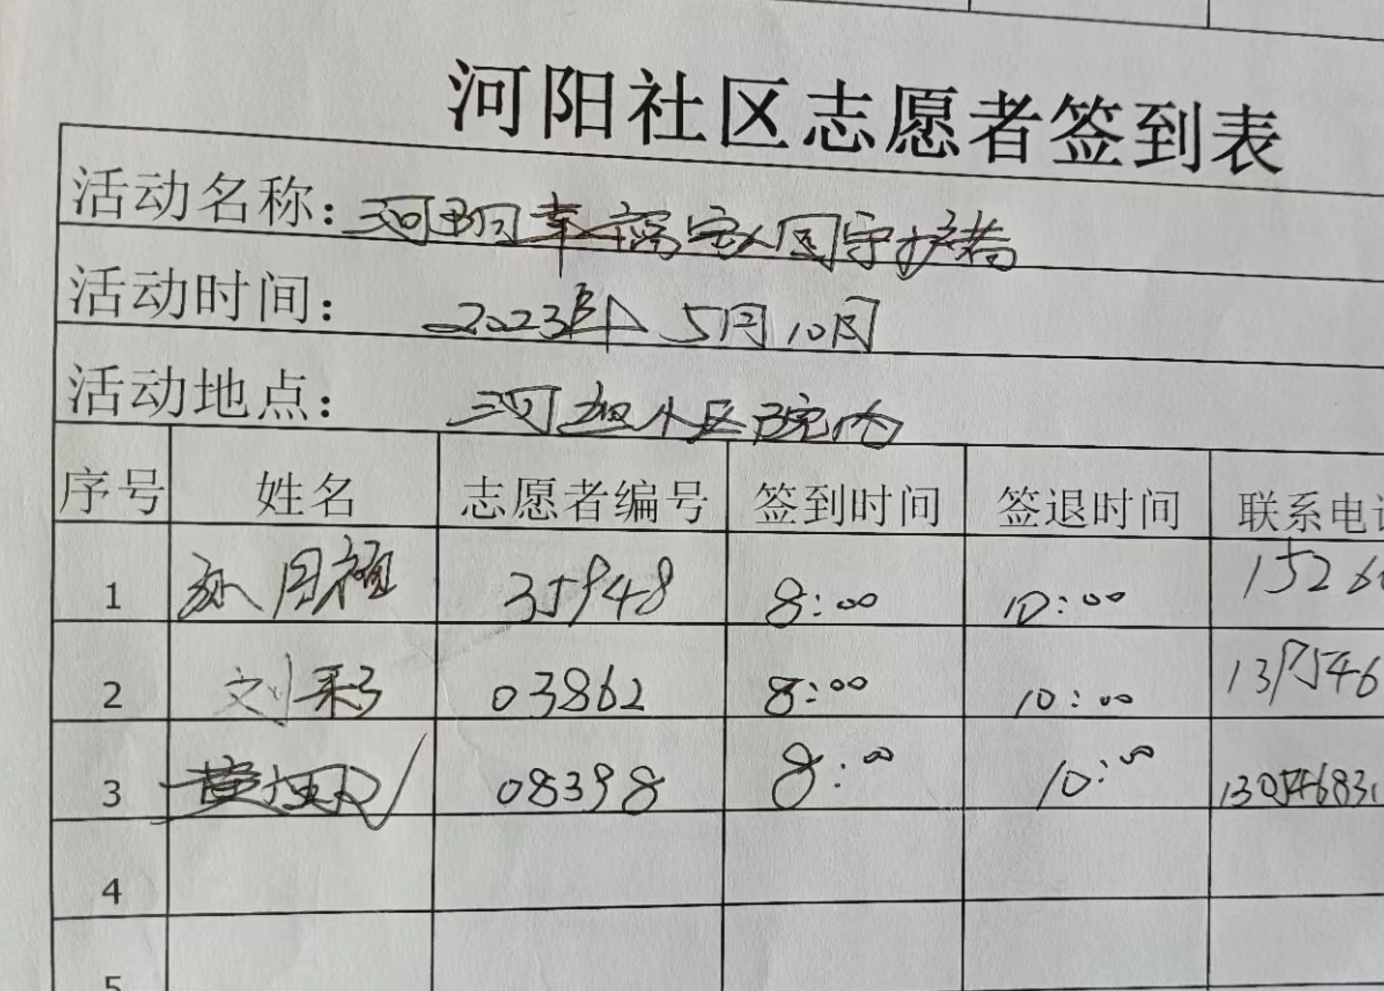 河阳社区志愿者签到表
活动名称：河阳幸福家园守护者
活动时间： 2023年 5月10日
活动地点： 河小区院内
序号 姓名 志愿者编号 签到时间 签退时间 联系电
1 孙月 35948 8:00 10:00 1526
2 刘彩 03862 8:00 10:00 137546
3 黄 08398 8:00 10:00 130546831
4
5